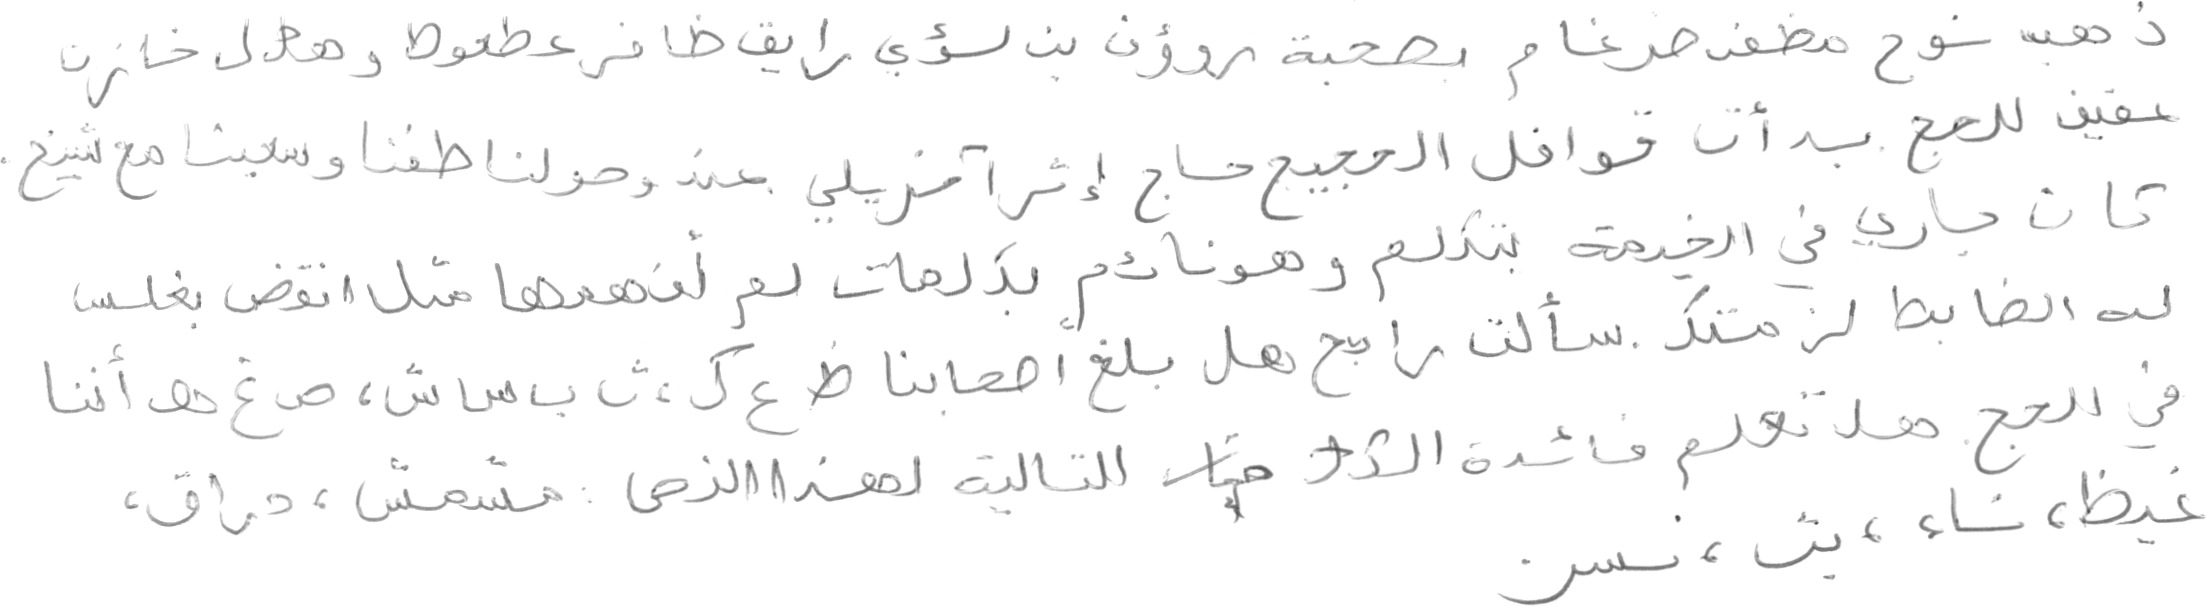 ذهب نوح مظفر ضرغام بصحبة رؤوف بن لؤي رايق ظافر عطعوط وهلال خازن
عفيف للحج. بدأت قوافل الحجيج حاج إثر آخر يلي عند وحولنا طفنا وسعينا مع شيخ.
كان جاري في الخيمة يتكلم وهو نائم بكلمات لم أفهمها مثل انقض بغلس
له الضابط لز متك. سألت رابح هل بلغ أصحابنا ظ ع ك، ث ب س اش، ص غ هـ أننا
في الحج. هل تعلم فائدة التالية لهذا النص: مشمش، حراق،
غيظ، شاء، بث، نسرن